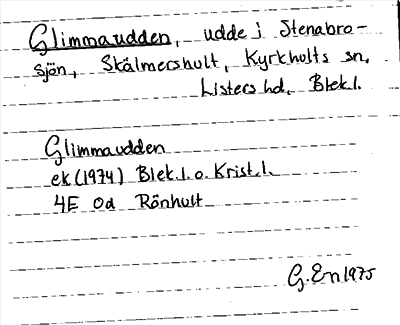 Glimmaudden, udde i Stenabro-
sjön, Skälmershult, Kyrkhults sn.
Listers hd. Blek.l.
Glimmaudden
ek (1974) Blek.l. o. Krist.l.
4E 0d Rönhult
G. En 1975